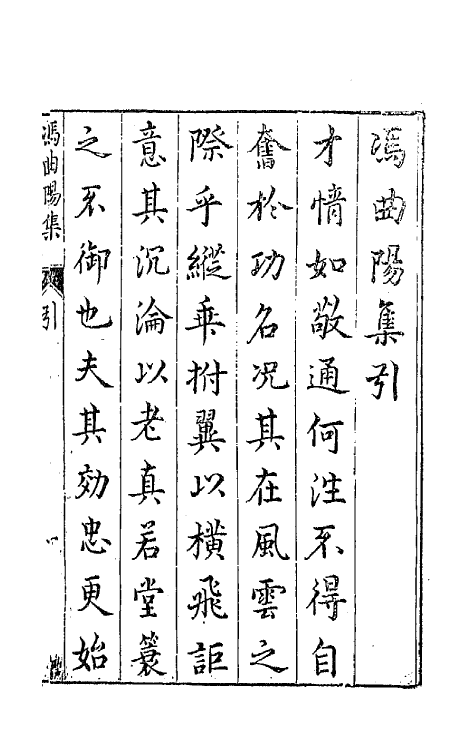 馮曲陽集引
才情如敬通何往不得自
奮於功名况其在風雲之
際乎縱乘拊翼以橫飛詎
意其沉淪以老真若堂簑
之不御也夫其効忠更始
馮曲陽集
引
一